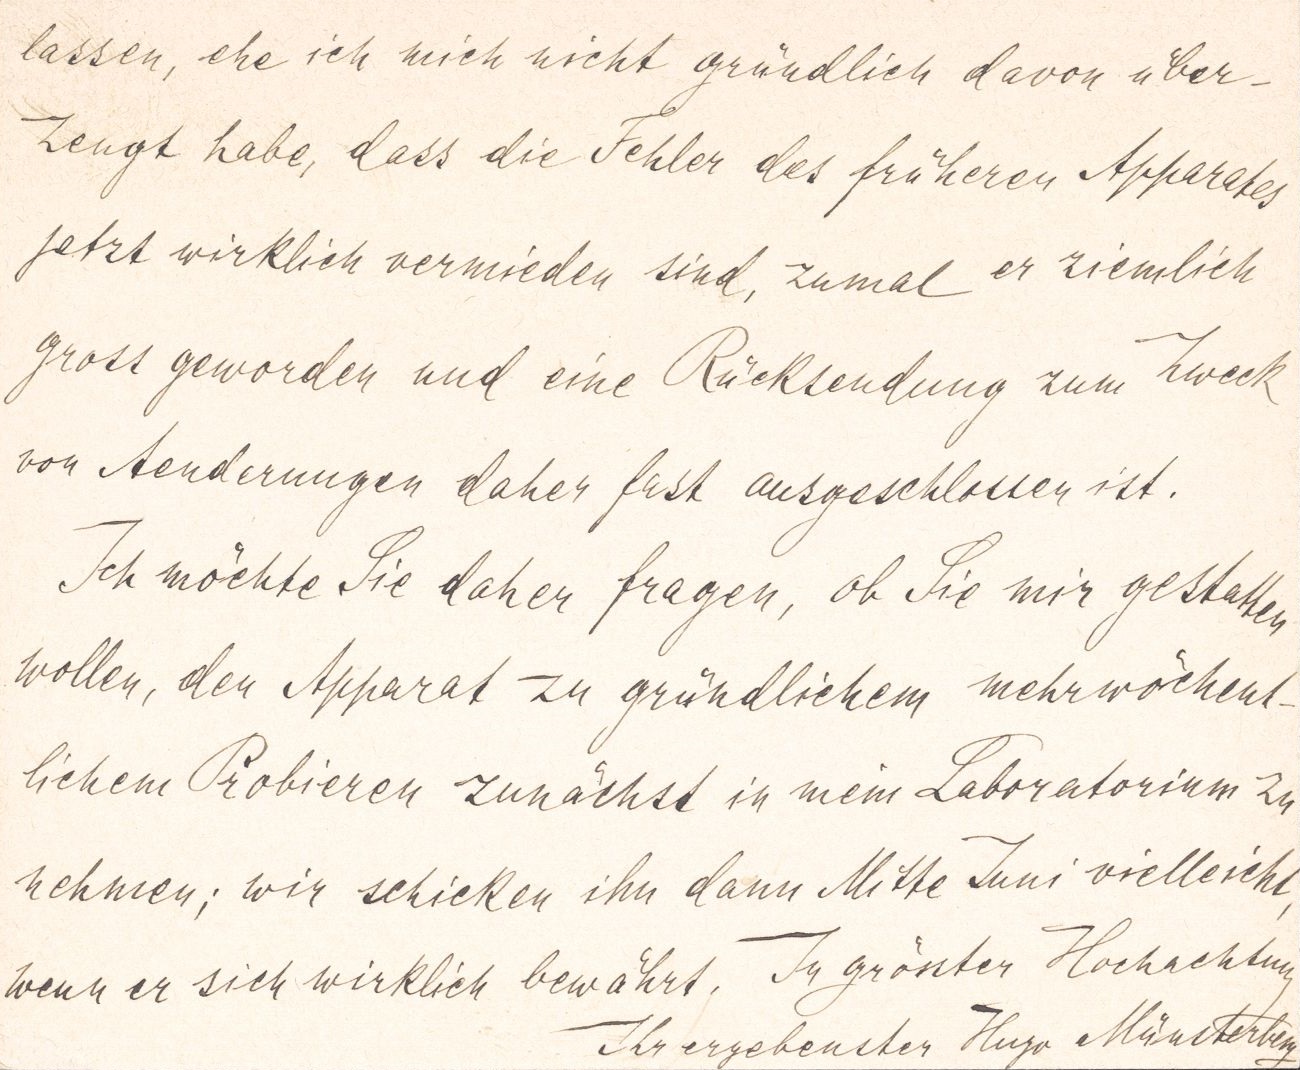 lassen, ehe ich mich nicht gründlich davon über-
zeugt habe, dass die Fehler des früheren Apparates
jetzt wirklich vermieden sind, zumal er ziemlich
gross geworden und eine Rücksendung zum Zweck
von Aenderungen daher fast ausgeschlossen ist.
Ich möchte Sie daher fragen, ob Sie mir gestatten
wollen, den Apparat zu gründlichem mehrwöchent-
lichem Probieren zunächst in mein Laboratorium zu
nehmen; wir schicken ihn dann Mitte Juni vielleicht,
wenn er sich wirklich bewährt. In grösster Hochachtung
Ihr ergebenster Hugo Münsterberg